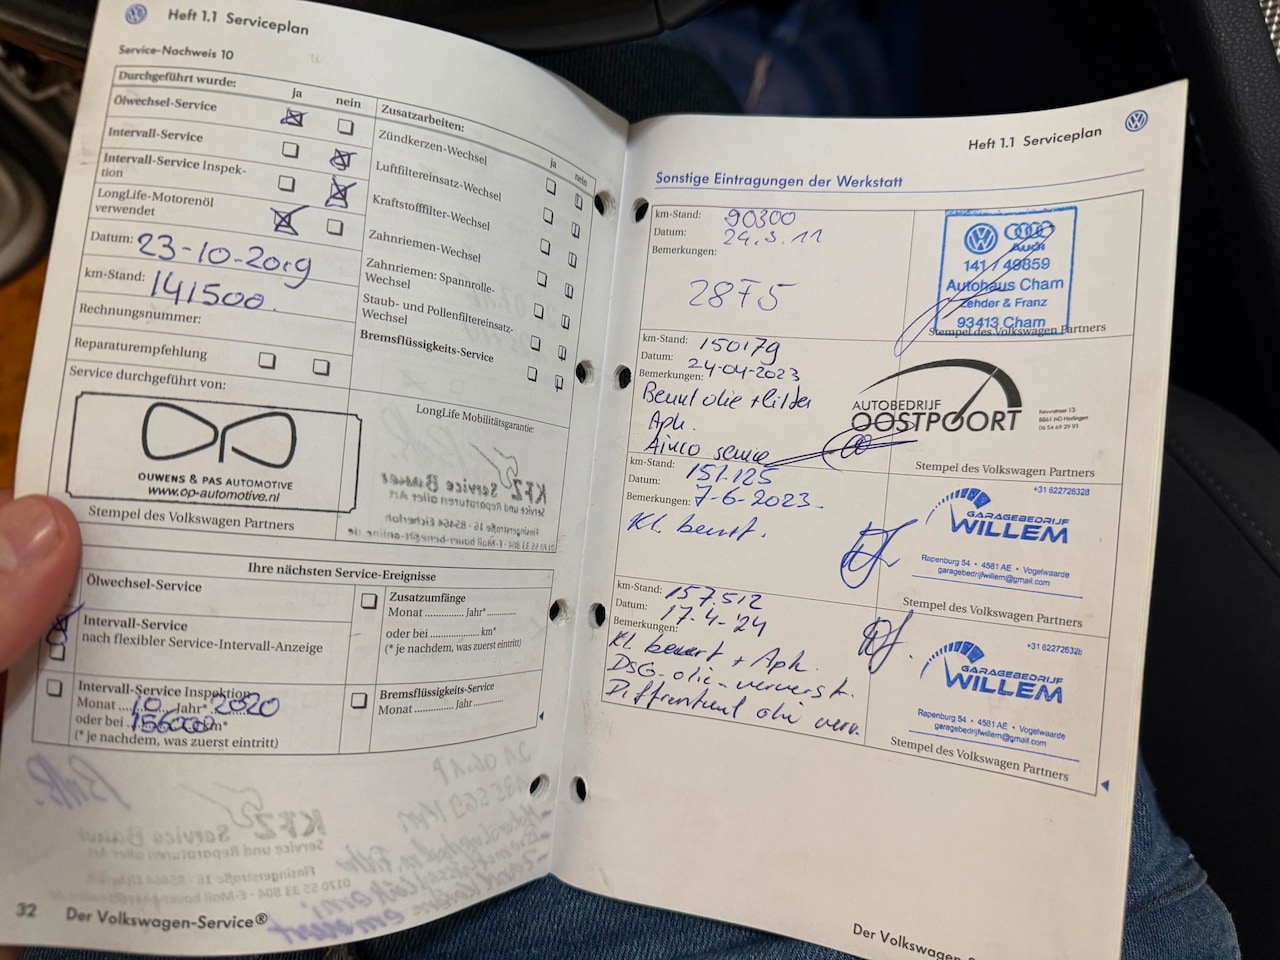 Heft 1.1 Serviceplan
Service-Nachweis 10
Durchgeführt wurde:
ja
nein
Ölwechsel-Service
Intervall-Service
Intervall-Service Inspek-
tion
LongLife-Motorenöl
verwendet
Datum: 23-10-2019
km-Stand: 141500.
Rechnungsnummer:
Reparaturempfehlung
Service durchgeführt von:
OUWENS & PAS AUTOMOTIVE
www.op-automotive.nl
Stempel des Volkswagen Partners
Zusatzarbeiten:
ja
nein
Zündkerzen-Wechsel
Luftfiltereinsatz-Wechsel
Kraftstofffilter-Wechsel
Zahnriemen-Wechsel
Zahnriemen: Spannrolle-
Wechsel
Staub- und Pollenfiltereinsatz-
Wechsel
Bremsflüssigkeits-Service
LongLife Mobilitätsgarantie:
Ihre nächsten Service-Ereignisse
Ölwechsel-Service
Intervall-Service
nach flexibler Service-Intervall-Anzeige
Intervall-Service Inspektion
Monat 10 Jahr* 2020
oder bei 156000 km*
(* je nachdem, was zuerst eintritt)
Zusatzumfänge
Monat .............. Jahr* ............
oder bei .................... km*
(* je nachdem, was zuerst eintritt)
Bremsflüssigkeits-Service
Monat .............. Jahr ............
32 Der Volkswagen-Service®
Heft 1.1 Serviceplan
Sonstige Eintragungen der Werkstatt
km-Stand: 90300
Datum: 24.3.11
Bemerkungen:
28F5
Audi
141 / 49859
Autohaus Cham
Zehder & Franz
93413 Cham
Stempel des Volkswagen Partners
km-Stand: 150179
Datum: 24-04-2023
Bemerkungen:
Beurt olie + filter
Apk.
Airco
AUTOBEDRIJF
OOSTPOORT
8861 Harlingen
06 54 69 29 93
Stempel des Volkswagen Partners
km-Stand: 151.125
Datum: 7-6-2023.
Bemerkungen:
Kl. beurt.
+31 622726328
GARAGEBEDRIJF
WILLEM
Rapenburg 54 • 4581 AE • Vogelwaarde
garagebedrijfwillem@gmail.com
Stempel des Volkswagen Partners
km-Stand: 157.512
Datum: 17-4-'24
Bemerkungen:
Kl. beurt + Apk.
DSG-olie-ververst.
Differentieel olie verv.
+31 622726328
GARAGEBEDRIJF
WILLEM
Rapenburg 54 • 4581 AE • Vogelwaarde
garagebedrijfwillem@gmail.com
Stempel des Volkswagen Partners
Der Volkswagen-S